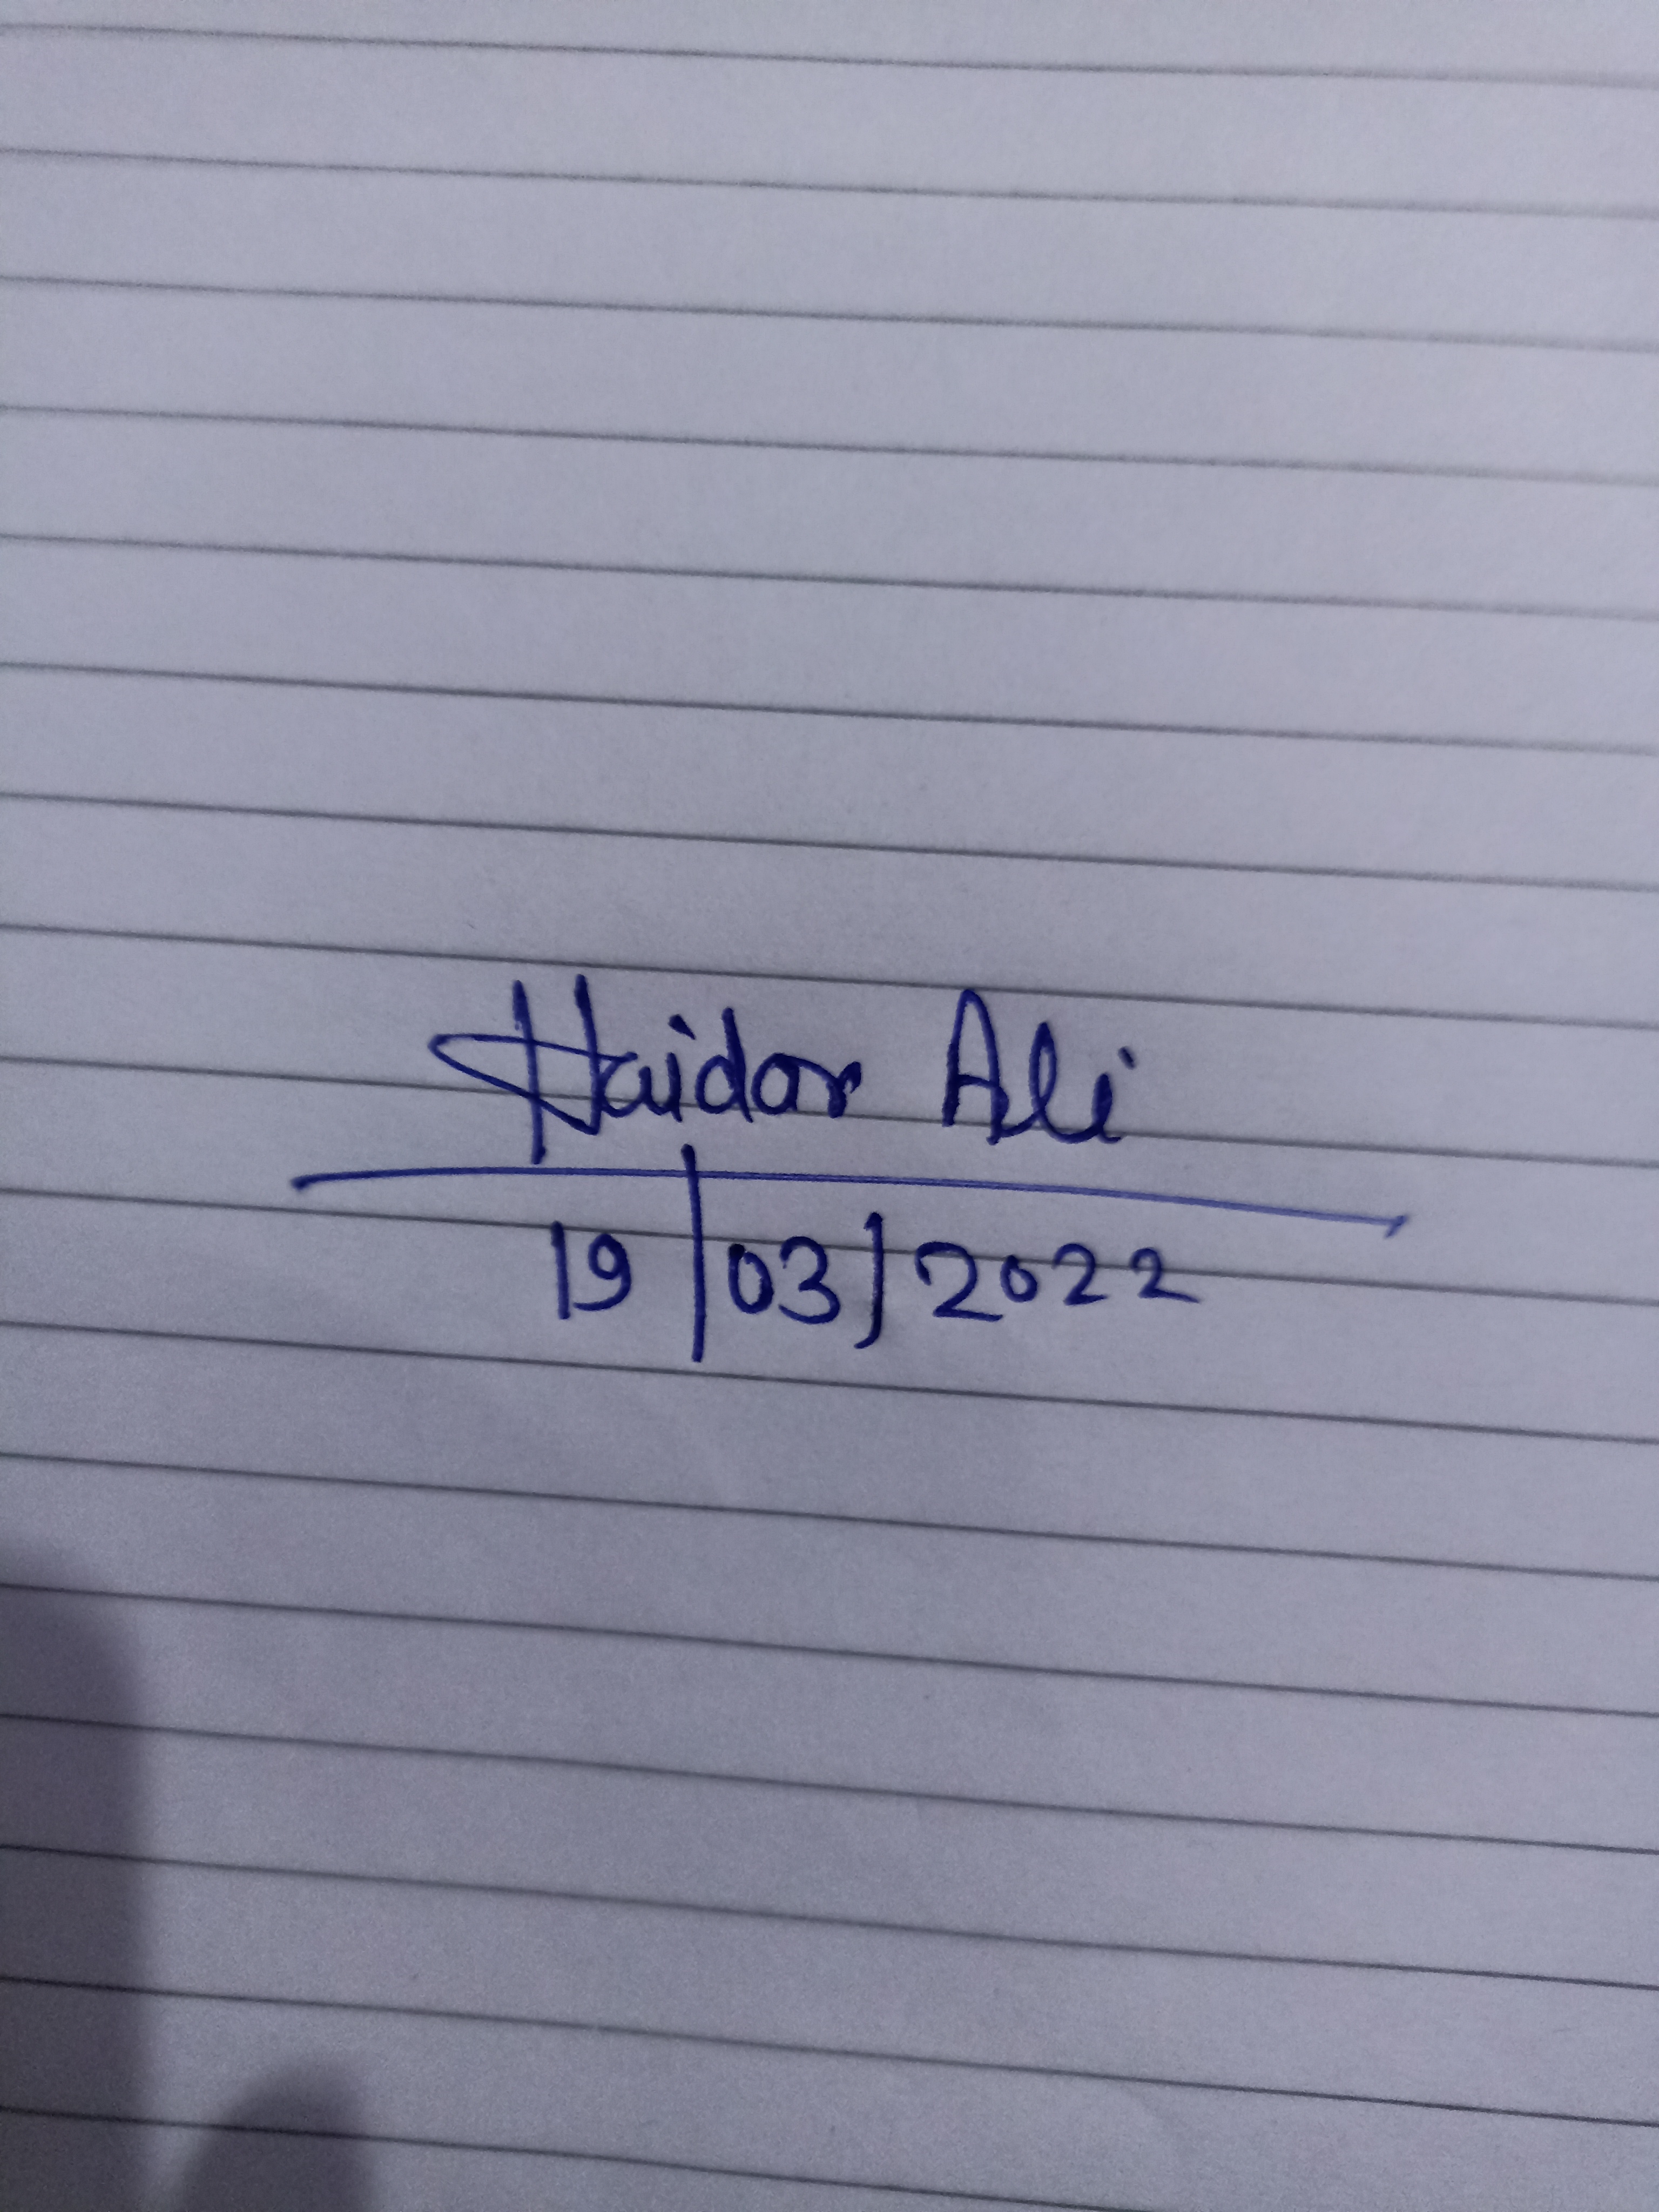 Haidar Ali
19/03/2022